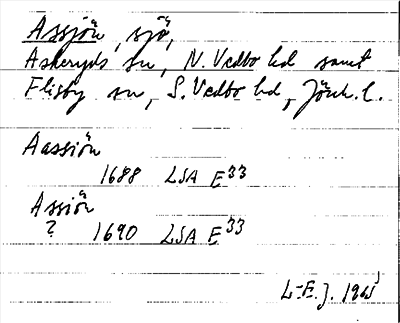 Assjön, sjö,
Askeryds sn, N. Vedbo hd samt
Flisby sn, S. Vedbo hd, Jönk. l.
Aassiön
1688 LSA E33
Assiön
? 1690 LSA E33
L-E. J.